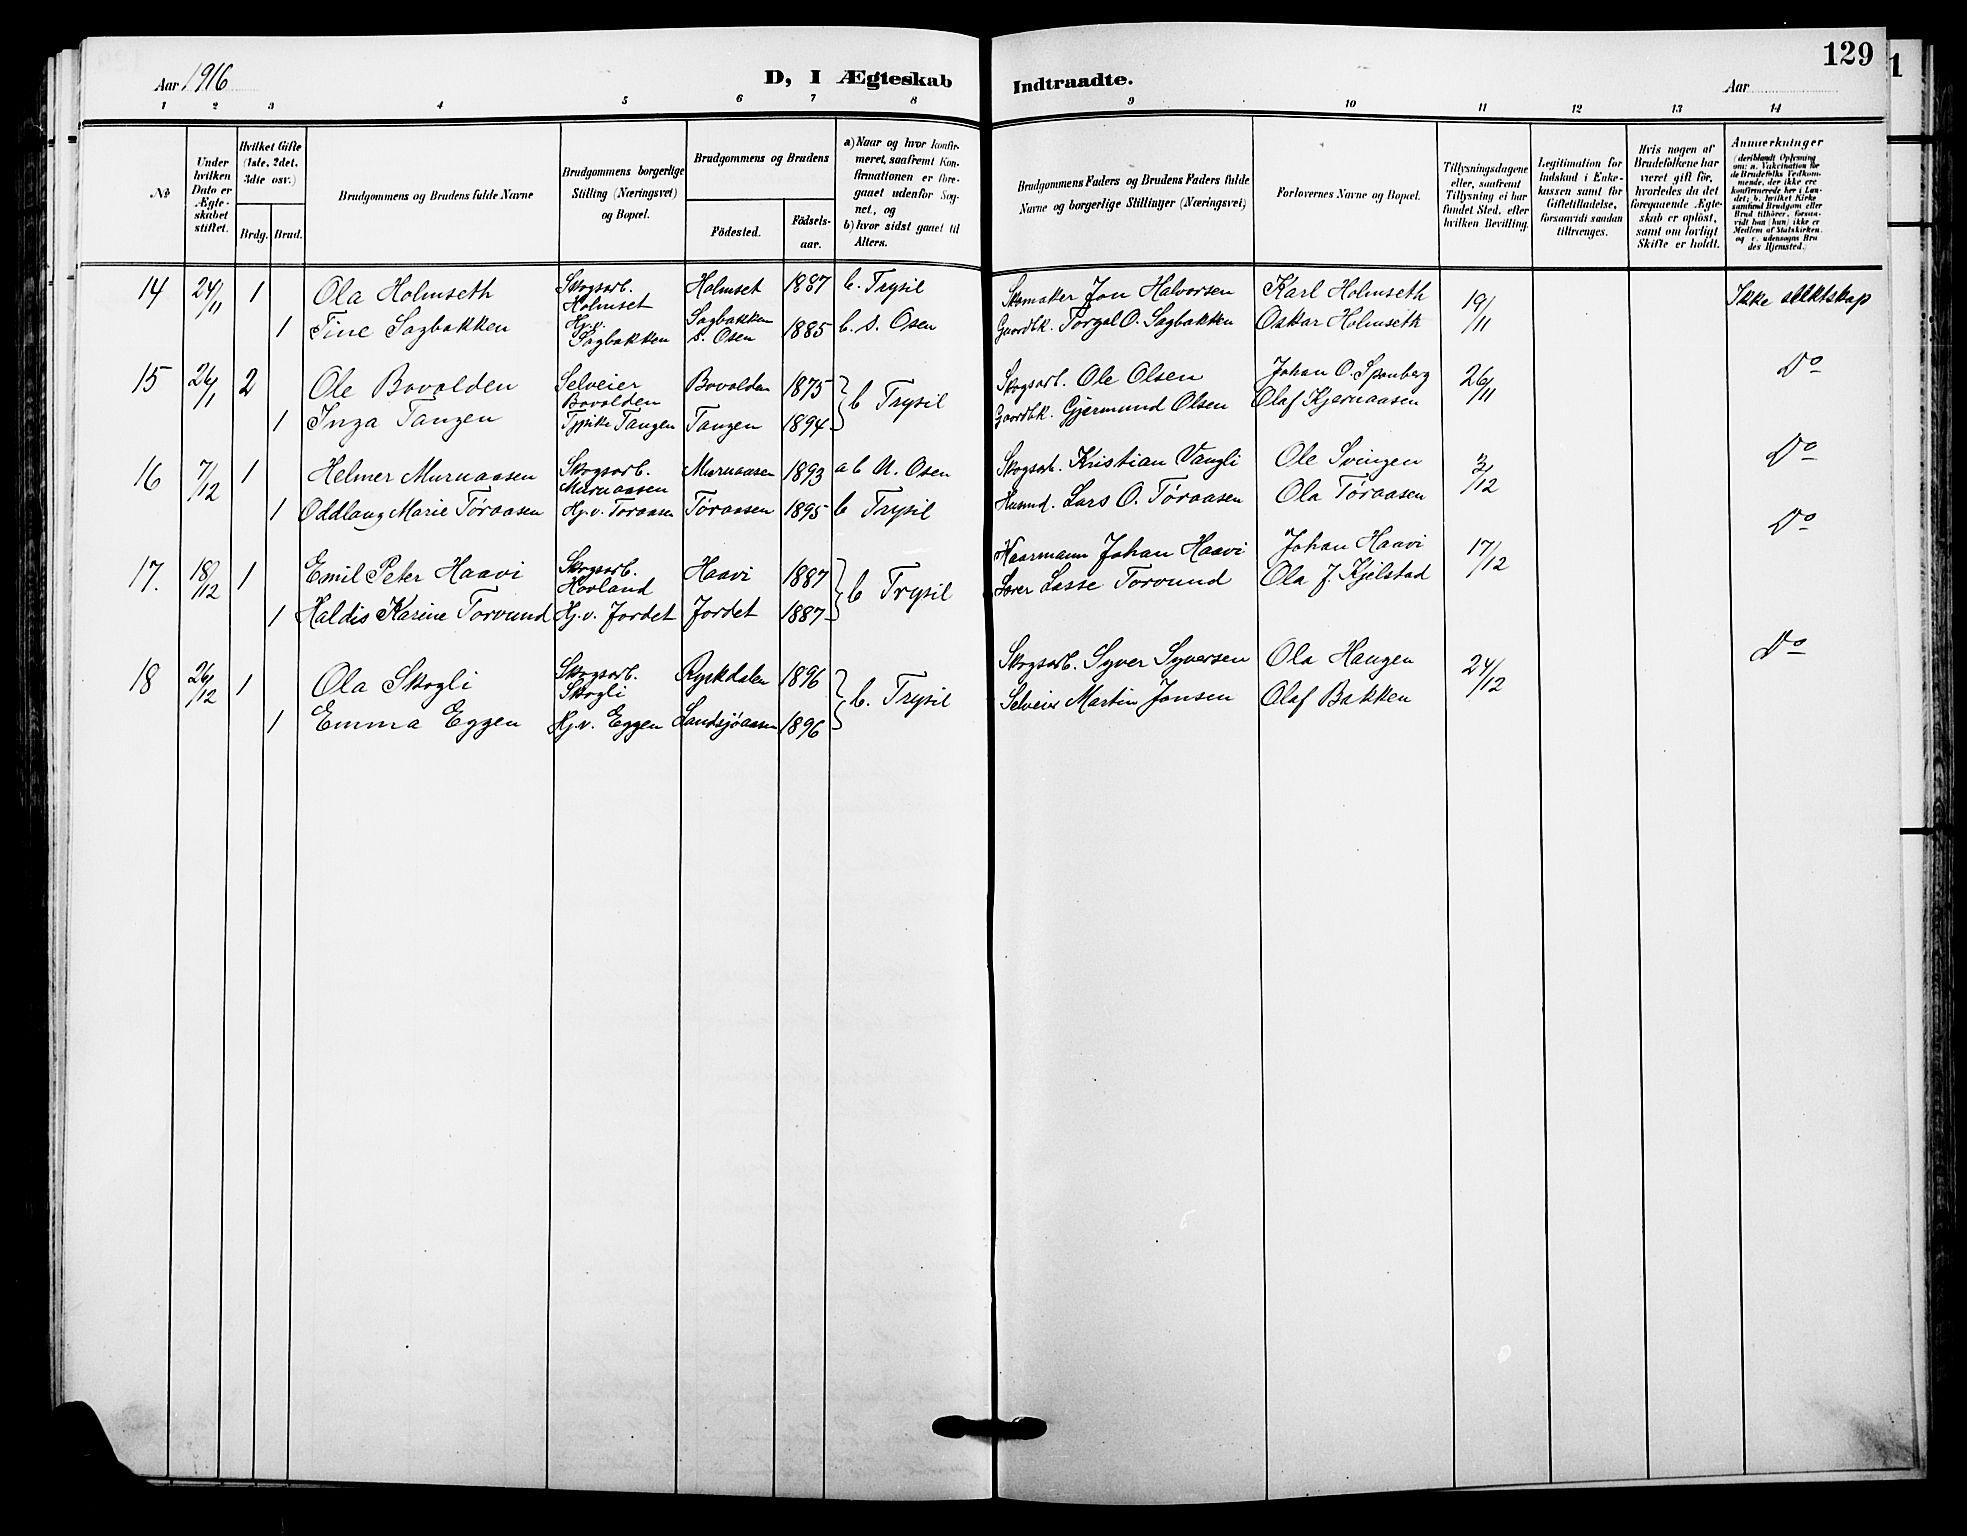 129
1
Aar 1916
D, I Ægteskab
Indtraadte.
Aar
1 2 3 4 5 6 7 8 9 10 11 12 13 14
№
Under hvilken Dato er Ægte-skabet stiftet.
Hvilket Gifte (1ste, 2det, 3die osv.)
Brdg. Brud.
Brudgommens og Brudens fulde Navne
Brudgommens borgerlige Stilling (Næringsvei) og Bopæl.
Brudgommens og Brudens
Födested.
Födsels-aar.
a) Naar og hvor konfir-meret, saafremt Kon-firmationen er fore-gaaet udenfor Sog-net, og
b) hvor sidst gaaet til Alters.
Brudgommens Faders og Brudens Faders fulde Navne og borgerlige Stillinger (Næringsvei)
Forlovernes Navne og Bopæl.
Tillysningsdagene eller, saafremt Tillysning ei har fundet Sted, efter hvilken Bevilling.
Legitimation for Indskud i Enke-kassen samt for Giftetilladelse, forsaavidt saadan tiltrænges.
Hvis nogen af Brudefolkene har været gift för, hvorledes da det foregaaende Ægte-skab er oplöst, samt om lovligt Skifte er holdt.
Anmærkninger
(deriblandt Oplysning om: a. Vakcination for de Brudefolks Vedkom-mende, der ikke ere konfirmerede her i Lan-det; b. hvilket Kirke samfund Brudgom eller Brud tilhörer, forsaa-vidt han (hun) ikke er Medlem af Statskirken. og c. udensogns Bru des Hjemsted.
14 24/11 1 Ola Holmseth Skogsarb. Holmset Holmset 1887 b. Trysil Skomaker Jon Halvorsen Karl Holmseth 19/11 Ikke slektskap
1 Tine Sagbakken Hj.v. Sagbakken Sagbakken s. Osen 1885 b. s. Osen Gaardbk. Torgal O. Sagbakken Oskar Holmseth
15 26/11 2 Ole Bovolden Selveier Bovolden Bovolden 1875 b Trysil Skogsarb. Ole Olsen Johan O. Sponberg 26/11 Do
1 Inga Tangen Tangen Tangen 1894 Gaardbk. Gjermund Olsen Olaf Kjernaasen
16 7/12 1 Helmer Murnaasen Skogsarb. Murnaasen Murnaasen 1893 a b N. Osen Skogsarb. Kristian Vangli Ole Svingen 3/12 Do
1 Oddlaug Marie Töraasen Hj.v. Toraasen Töraasen 1895 b Trysil Husmd. Lars O. Töraasen Ola Töraasen
17. 18/12 1 Emil Peter Haavi Skogsarb. Horland Haavi 1887 b Trysil Johan Haavi Johan Haavi 17/12 Do
1 Haldis Karine Torvund Hj.v. Jordet Jordet 1887 Lærer Lasse Torvund Ola J. Kjelstad
18 26/12 1 Ola Skogli Skogsarb. Skogli Ryskdalen 1896 b. Trysil Skogsarb. Syver Syversen Ola Haugen 24/12 Do
1 Emma Eggen Hj.v. Eggen Landsjöaasen 1896 Selveier Martin Jonsen Olaf Bakken